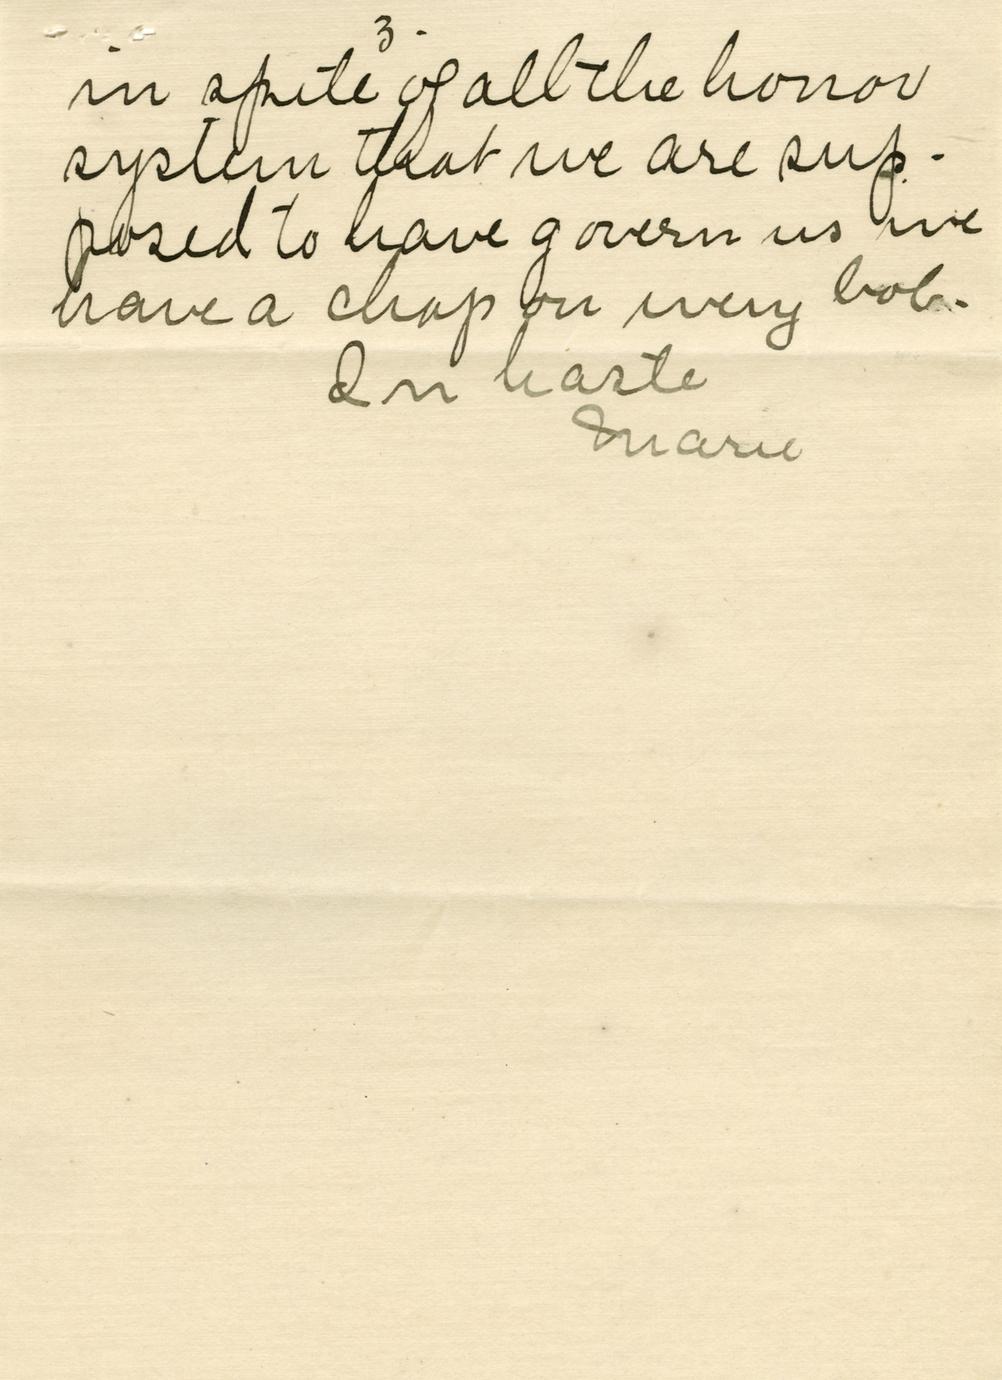 3.
in spite of all the honor
system that we are sup-
posed to have govern us we
have a chap on every bob.
In haste
Marie